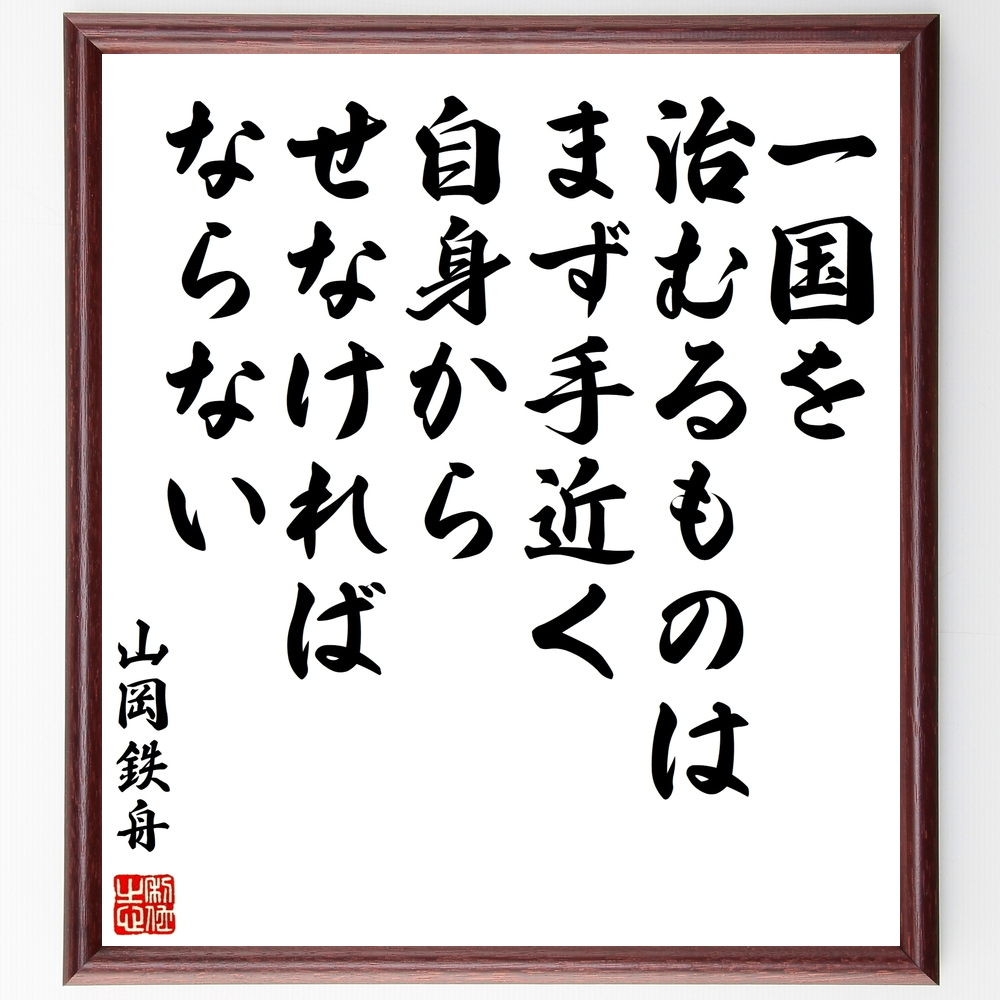 一国を
治むるものは
まず手近く
自身から
せなければ
ならない
山岡鉄舟